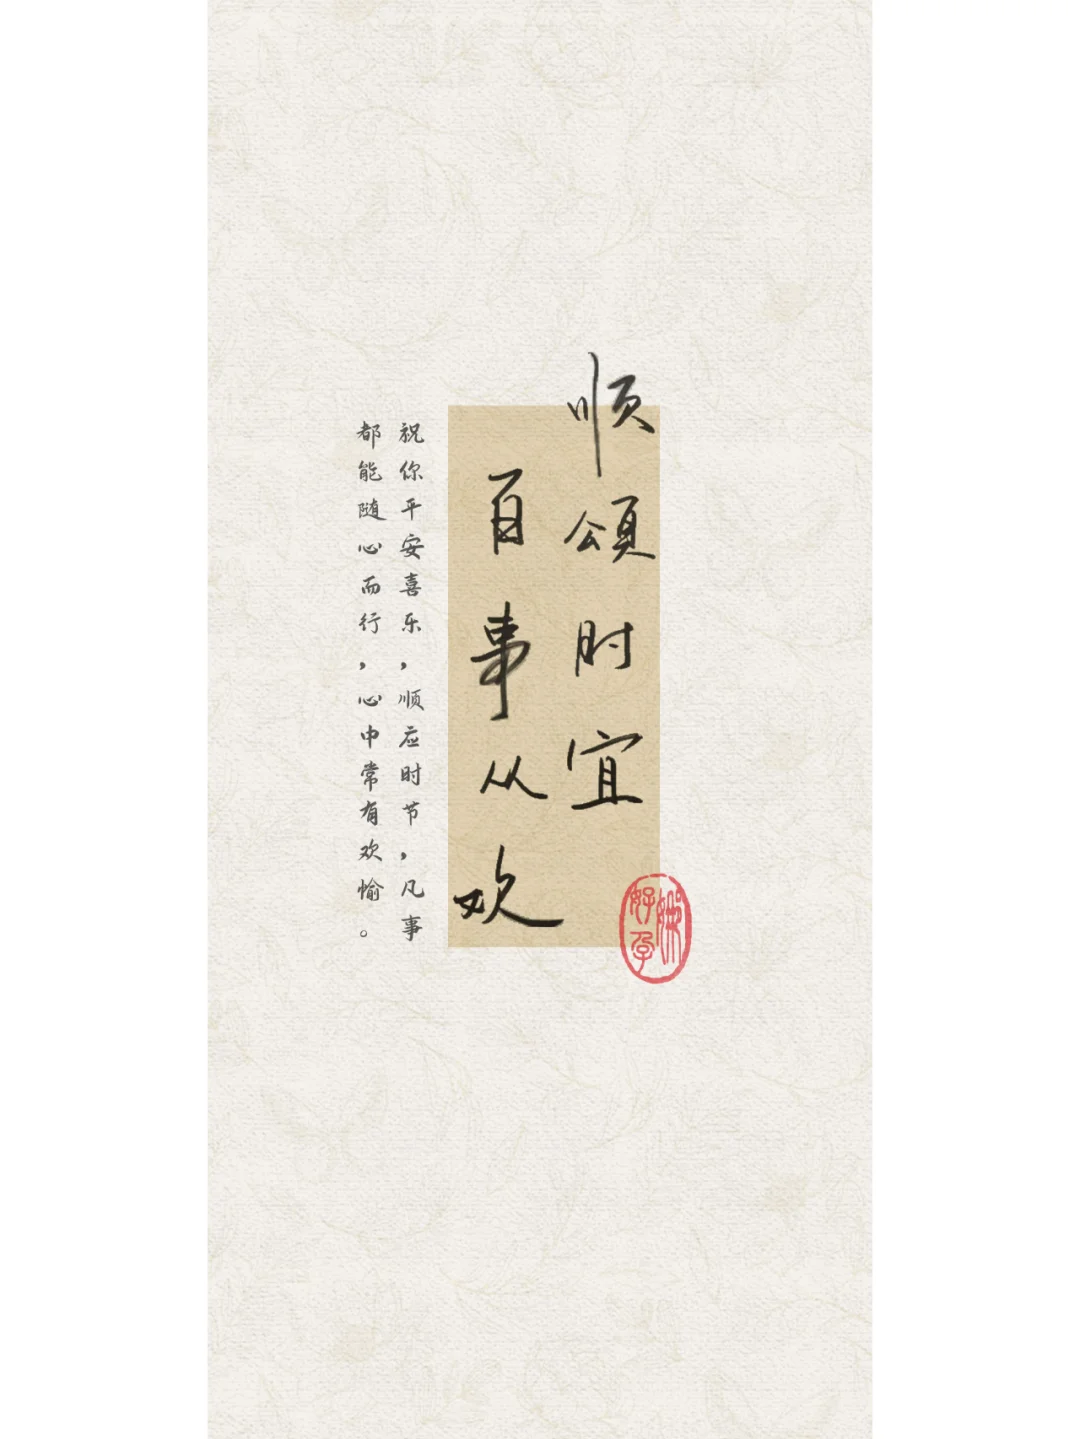 顺颂时宜
百事从欢
祝你平安喜乐，顺应时节，凡事
都能随心而行，心中常有欢愉。
好孕